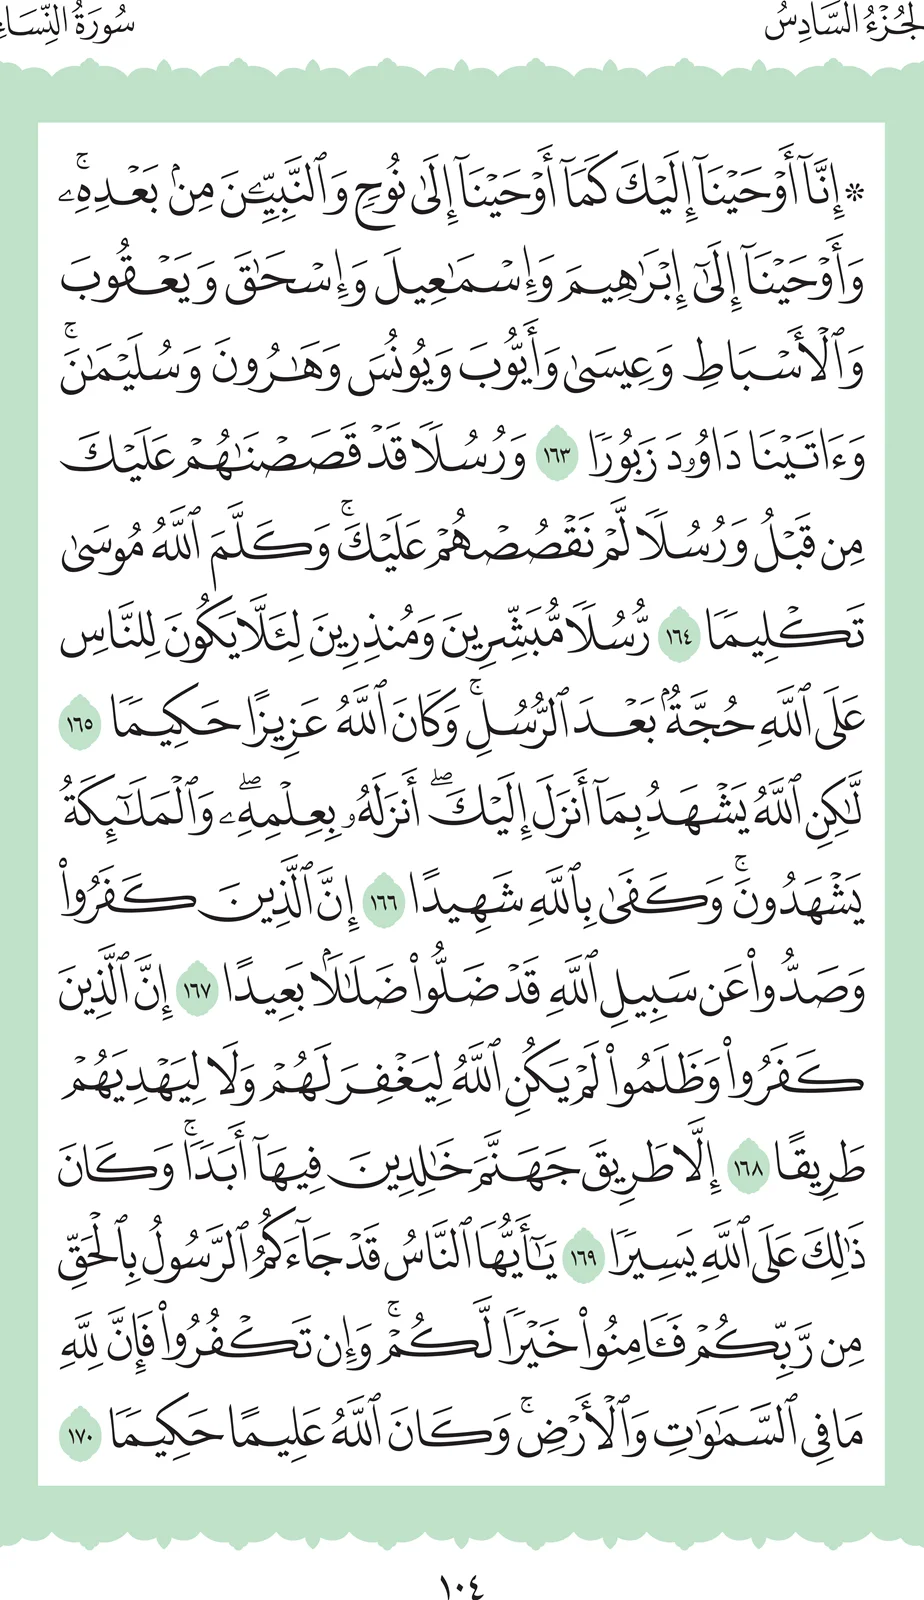 الجُزْءُ السَّادِسُ
سُورَةُ النِّسَاءِ
۞ إِنَّآ أَوْحَيْنَآ إِلَيْكَ كَمَآ أَوْحَيْنَآ إِلَىٰ نُوحٖ وَٱلنَّبِيِّـۧنَ مِنۢ بَعْدِهِۦۚ
وَأَوْحَيْنَآ إِلَىٰٓ إِبْرَٰهِيمَ وَإِسْمَٰعِيلَ وَإِسْحَٰقَ وَيَعْقُوبَ
وَٱلْأَسْبَاطِ وَعِيسَىٰ وَأَيُّوبَ وَيُونُسَ وَهَٰرُونَ وَسُلَيْمَٰنَۚ
وَءَاتَيْنَا دَاوُۥدَ زَبُورٗا ١٦٣ وَرُسُلٗا قَدْ قَصَصْنَٰهُمْ عَلَيْكَ
مِن قَبْلُ وَرُسُلٗا لَّمْ نَقْصُصْهُمْ عَلَيْكَۚ وَكَلَّمَ ٱللَّهُ مُوسَىٰ
تَكْلِيمٗا ١٦٤ رُّسُلٗا مُّبَشِّرِينَ وَمُنذِرِينَ لِئَلَّا يَكُونَ لِلنَّاسِ
عَلَى ٱللَّهِ حُجَّةُۢ بَعْدَ ٱلرُّسُلِۚ وَكَانَ ٱللَّهُ عَزِيزًا حَكِيمٗا ١٦٥
لَّٰكِنِ ٱللَّهُ يَشْهَدُ بِمَآ أَنزَلَ إِلَيْكَۖ أَنزَلَهُۥ بِعِلْمِهِۦۖ وَٱلْمَلَٰٓئِكَةُ
يَشْهَدُونَۚ وَكَفَىٰ بِٱللَّهِ شَهِيدًا ١٦٦ إِنَّ ٱلَّذِينَ كَفَرُواْ
وَصَدُّواْ عَن سَبِيلِ ٱللَّهِ قَدْ ضَلُّواْ ضَلَٰلَۢا بَعِيدًا ١٦٧ إِنَّ ٱلَّذِينَ
كَفَرُواْ وَظَلَمُواْ لَمْ يَكُنِ ٱللَّهُ لِيَغْفِرَ لَهُمْ وَلَا لِيَهْدِيَهُمْ
طَرِيقًا ١٦٨ إِلَّا طَرِيقَ جَهَنَّمَ خَٰلِدِينَ فِيهَآ أَبَدٗاۚ وَكَانَ
ذَٰلِكَ عَلَى ٱللَّهِ يَسِيرٗا ١٦٩ يَٰٓأَيُّهَا ٱلنَّاسُ قَدْ جَآءَكُمُ ٱلرَّسُولُ بِٱلْحَقِّ
مِن رَّبِّكُمْ فَـَٔامِنُواْ خَيْرٗا لَّكُمْۚ وَإِن تَكْفُرُواْ فَإِنَّ لِلَّهِ
مَا فِي ٱلسَّمَٰوَٰتِ وَٱلْأَرْضِۚ وَكَانَ ٱللَّهُ عَلِيمًا حَكِيمٗا ١٧٠
١٠٤